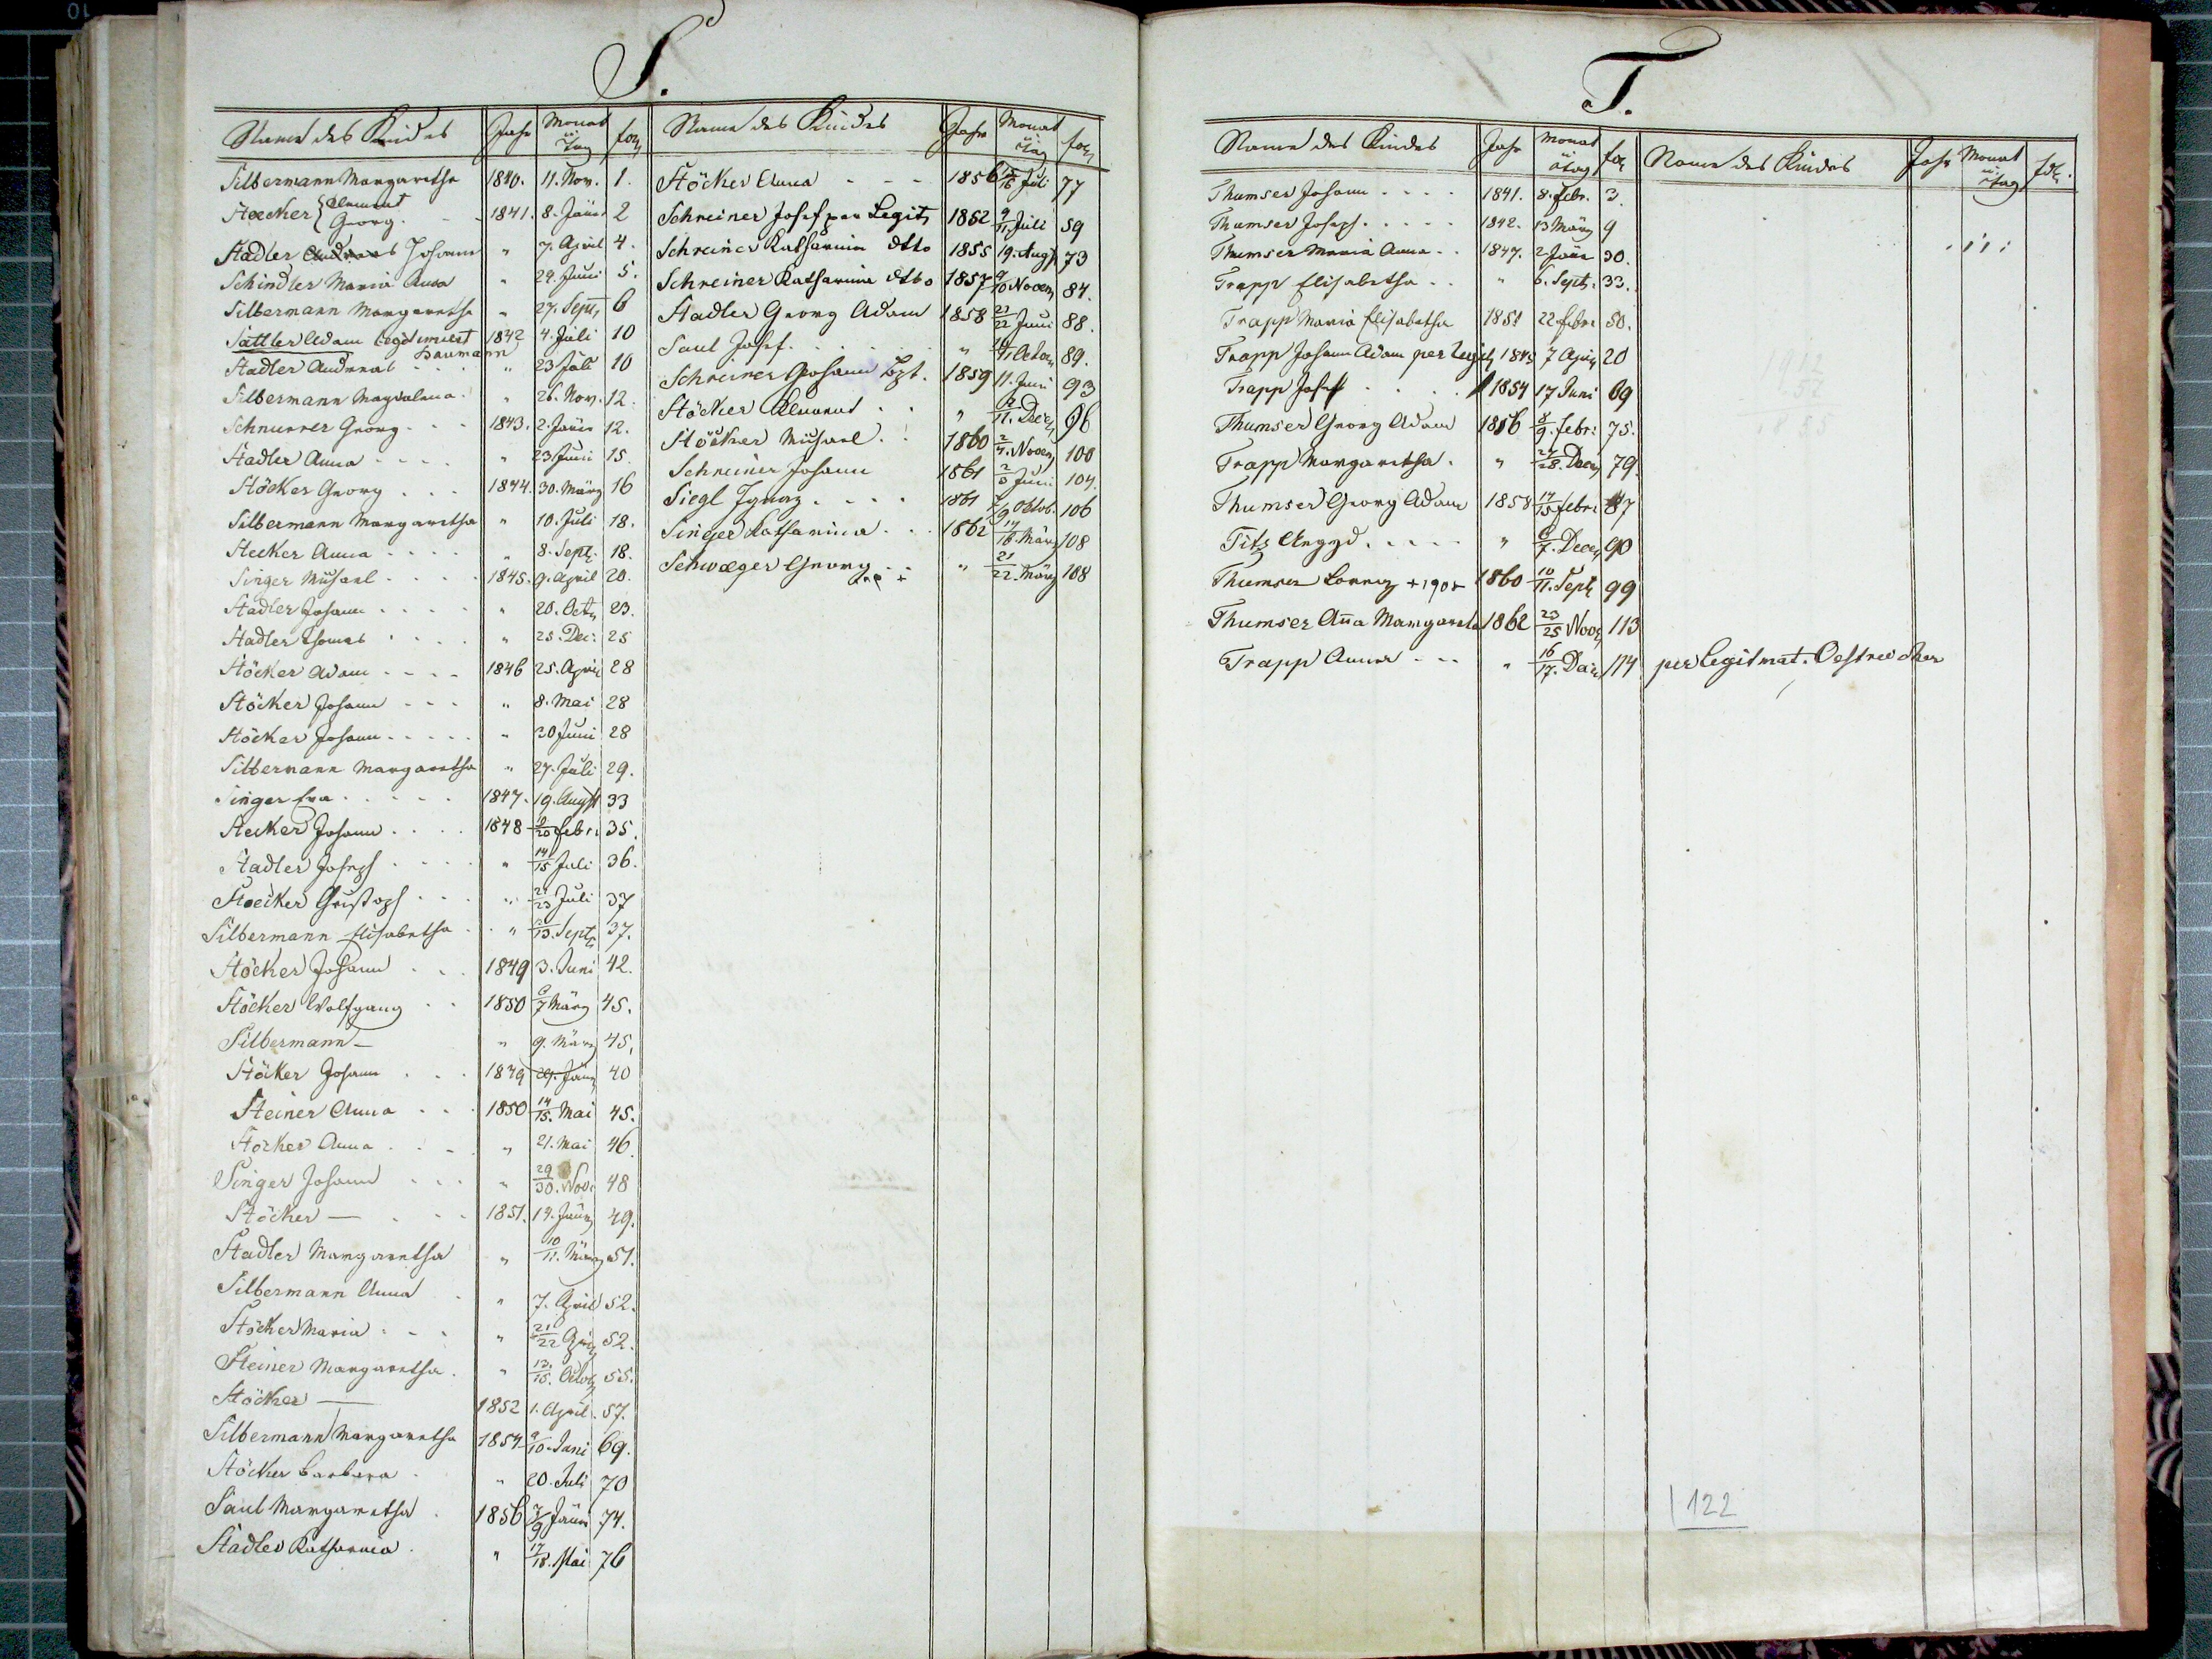 S.
Name des Kindes Jahr Monat u. Tag fol.
Silbermann Margaretha 1840. 11. Nov. 1.
Stoecker Clement Georg. 1841. 8. Jäner 2
Stadler Andreas Johann " 7. April 4.
Schindler Maria Anna " 29. Juni 5.
Silbermann Margaretha " 27. Sept. 6
Sattler Adam legitimiert Baumann 1842 4. Juli 10
Stadler Andreas " 23 Juli 10
Silbermann Magdalena " 26. Nov. 12.
Schnurrer Georg 1843. 2. Jäner 12.
Stadler Anna " 23 Juni 15.
Stöcker Georg 1844. 30. März 16
Silbermann Margaretha " 10. Juli 18.
Stecker Anna " 8. Sept. 18.
Singer Michael 1845. 9. April 20.
Stadler Johann " 20. Oct. 23.
Stadler Thomas " 25. Dec: 25
Stöcker Adam 1846 25. April 28
Stöcker Johann " 8. Mai 28
Stöcker Johann " 30 Juni 28
Silbermann Margaretha " 27. Juli 29.
Singer Eva 1847. 19. August 33
Stecker Johann 1848 20 Febr. 35.
Stadler Joseph " 14/15 Juli 36.
Stoecker Christoph " 21/23 Juli 37
Silbermann Elisabetha " 13. Sept. 37.
Stöcker Johann 1849 3. Juni 42.
Stöcker Wolfgang 1850 6/7 März 45.
Silbermann — " 9. März 45.
Stöcker Johann 1849 29. Jäner 40
Steiner Anna 1850 14/15. Mai 45.
Stöcker Anna " 21. Mai 46
Singer Johann " 29/30. Nov. 48
Stöcker — 1851. 14. Jäner 49.
Stadler Margaretha " 10/11. März 51.
Silbermann Anna " 7. April 52.
Stöcker Maria " 21/22 April 52.
Steiner Margaretha " 13./15. Octob. 55.
Stöcker — 1852 1. April 57.
Silbermann Margaretha 1854 9/10. Juni 69.
Stöcker Barbara " 20. Juli 70
Saul Margaretha 1856 7/9 Jäner 74.
Stadler Katharina " 17/18. Mai 76
Name des Kindes Jahr Monat u. Tag fol.
Stöcker Anna 1856 15/16 Juli 77
Schreiner Josef per Legit. 1852 9/11 Juli 59
Schreiner Katharina dtto 1855 19. Aug. 73
Schreiner Katharina dtto 1857 9/10 Novem. 84.
Stadler Georg Adam 1858 21/22 Juni 88.
Saul Josef " 10/11 Octob. 89.
Schreiner Johann Bapt. 1859 11. Juni 93
Stöcker Clement " 11. Dec. 96
Stöcker Michael 1860 2/4. Novem. 100
Schreiner Johann 1861 2/3 Juni 104.
Siegl Ignaz 1861 7/9 Oktob. 106
Singer Katharina 1862 14/16. März 108
Schwæger Georg " 21/22. März 108
T.
Name des Kindes Jahr Monat u. Tag fol.
Thumser Johann 1841. 8. Febr. 3.
Thumser Joseph 1842. 13 März 9
Thumser Maria Anna 1847. 2 Jäner 30.
Trapp Elisabetha " 6. Sept. 33.
Trapp Maria Elisabetha 1851 22 Febr. 50.
Trapp Johann Adam per Legit. 1845 7 April 20
Trapp Josef 1854 17 Juni 69
Thumser Georg Adam 1856 8/9. Febr. 75.
Trapp Margaretha " 27/28. Decem. 79.
Thumser Georg Adam 1858 14/15 Febr. 87
Titz Aegyd " 6/7. Decem. 90
Thumser Lorenz +1905 1860 10/11. Sept. 99
Thumser Anna Margareta 1862 23/25 Nov. 113
Trapp Anna " 16/17. Dec. 114 per legitmat. Oestreicher
Name des Kindes Jahr Monat u. Tag fol.
1912
52
1855
122